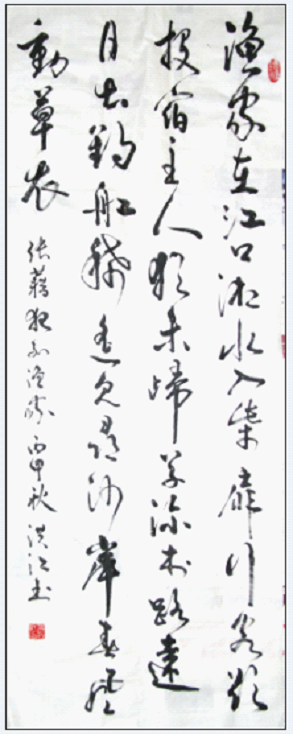 漁家在江口潮水入柴扉行客欲
投宿主人猶未歸竹深村路遠
月出釣舡稀遙見尋沙岸春風
動草衣
張籍夜到漁家 丙申秋 洪江書